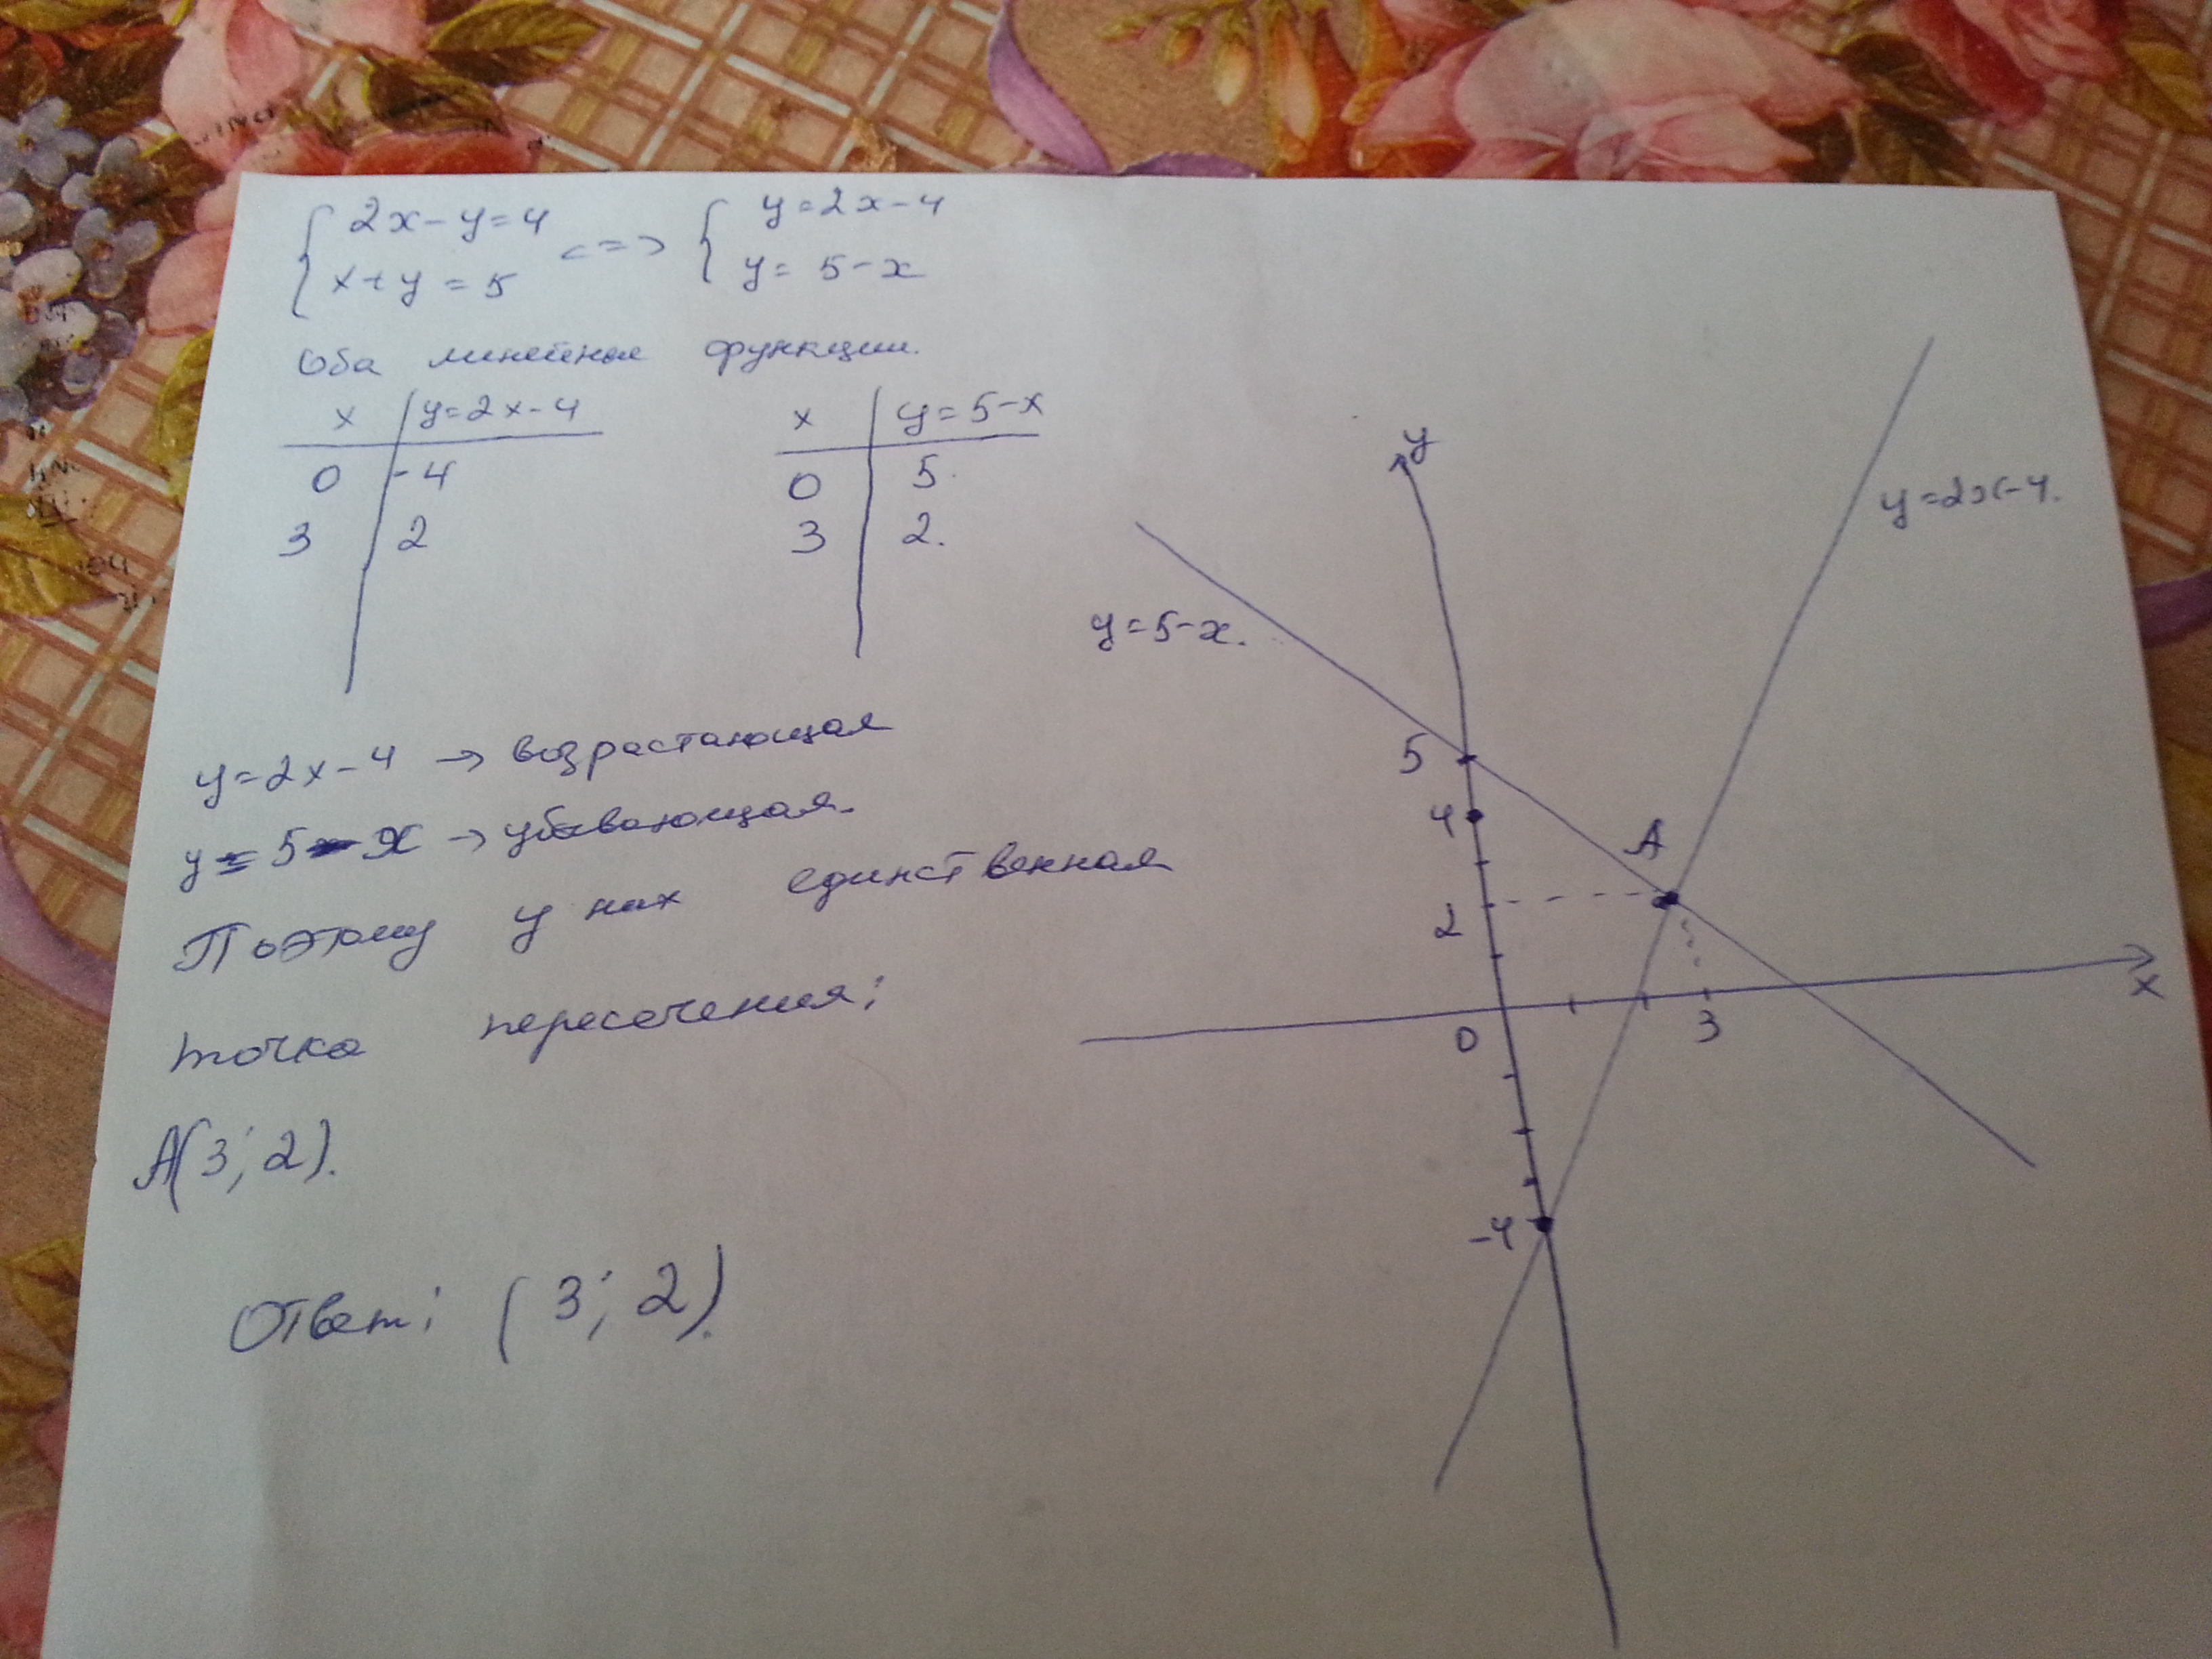 { 2x-y=4 <=> { y=2x-4
x+y=5 y=5-x
Оба линейные функции.
x y=2x-4 x y=5-x
0 -4 0 5.
3 2 3 2.
y=2x-4 → возрастающая
y=5-x → убывающая.
Поэтому у них единственная
точка пересечения:
A(3; 2).
Ответ: (3; 2).
y
y=2x-4.
y=5-x.
5
4
A
2
x
0
3
-4